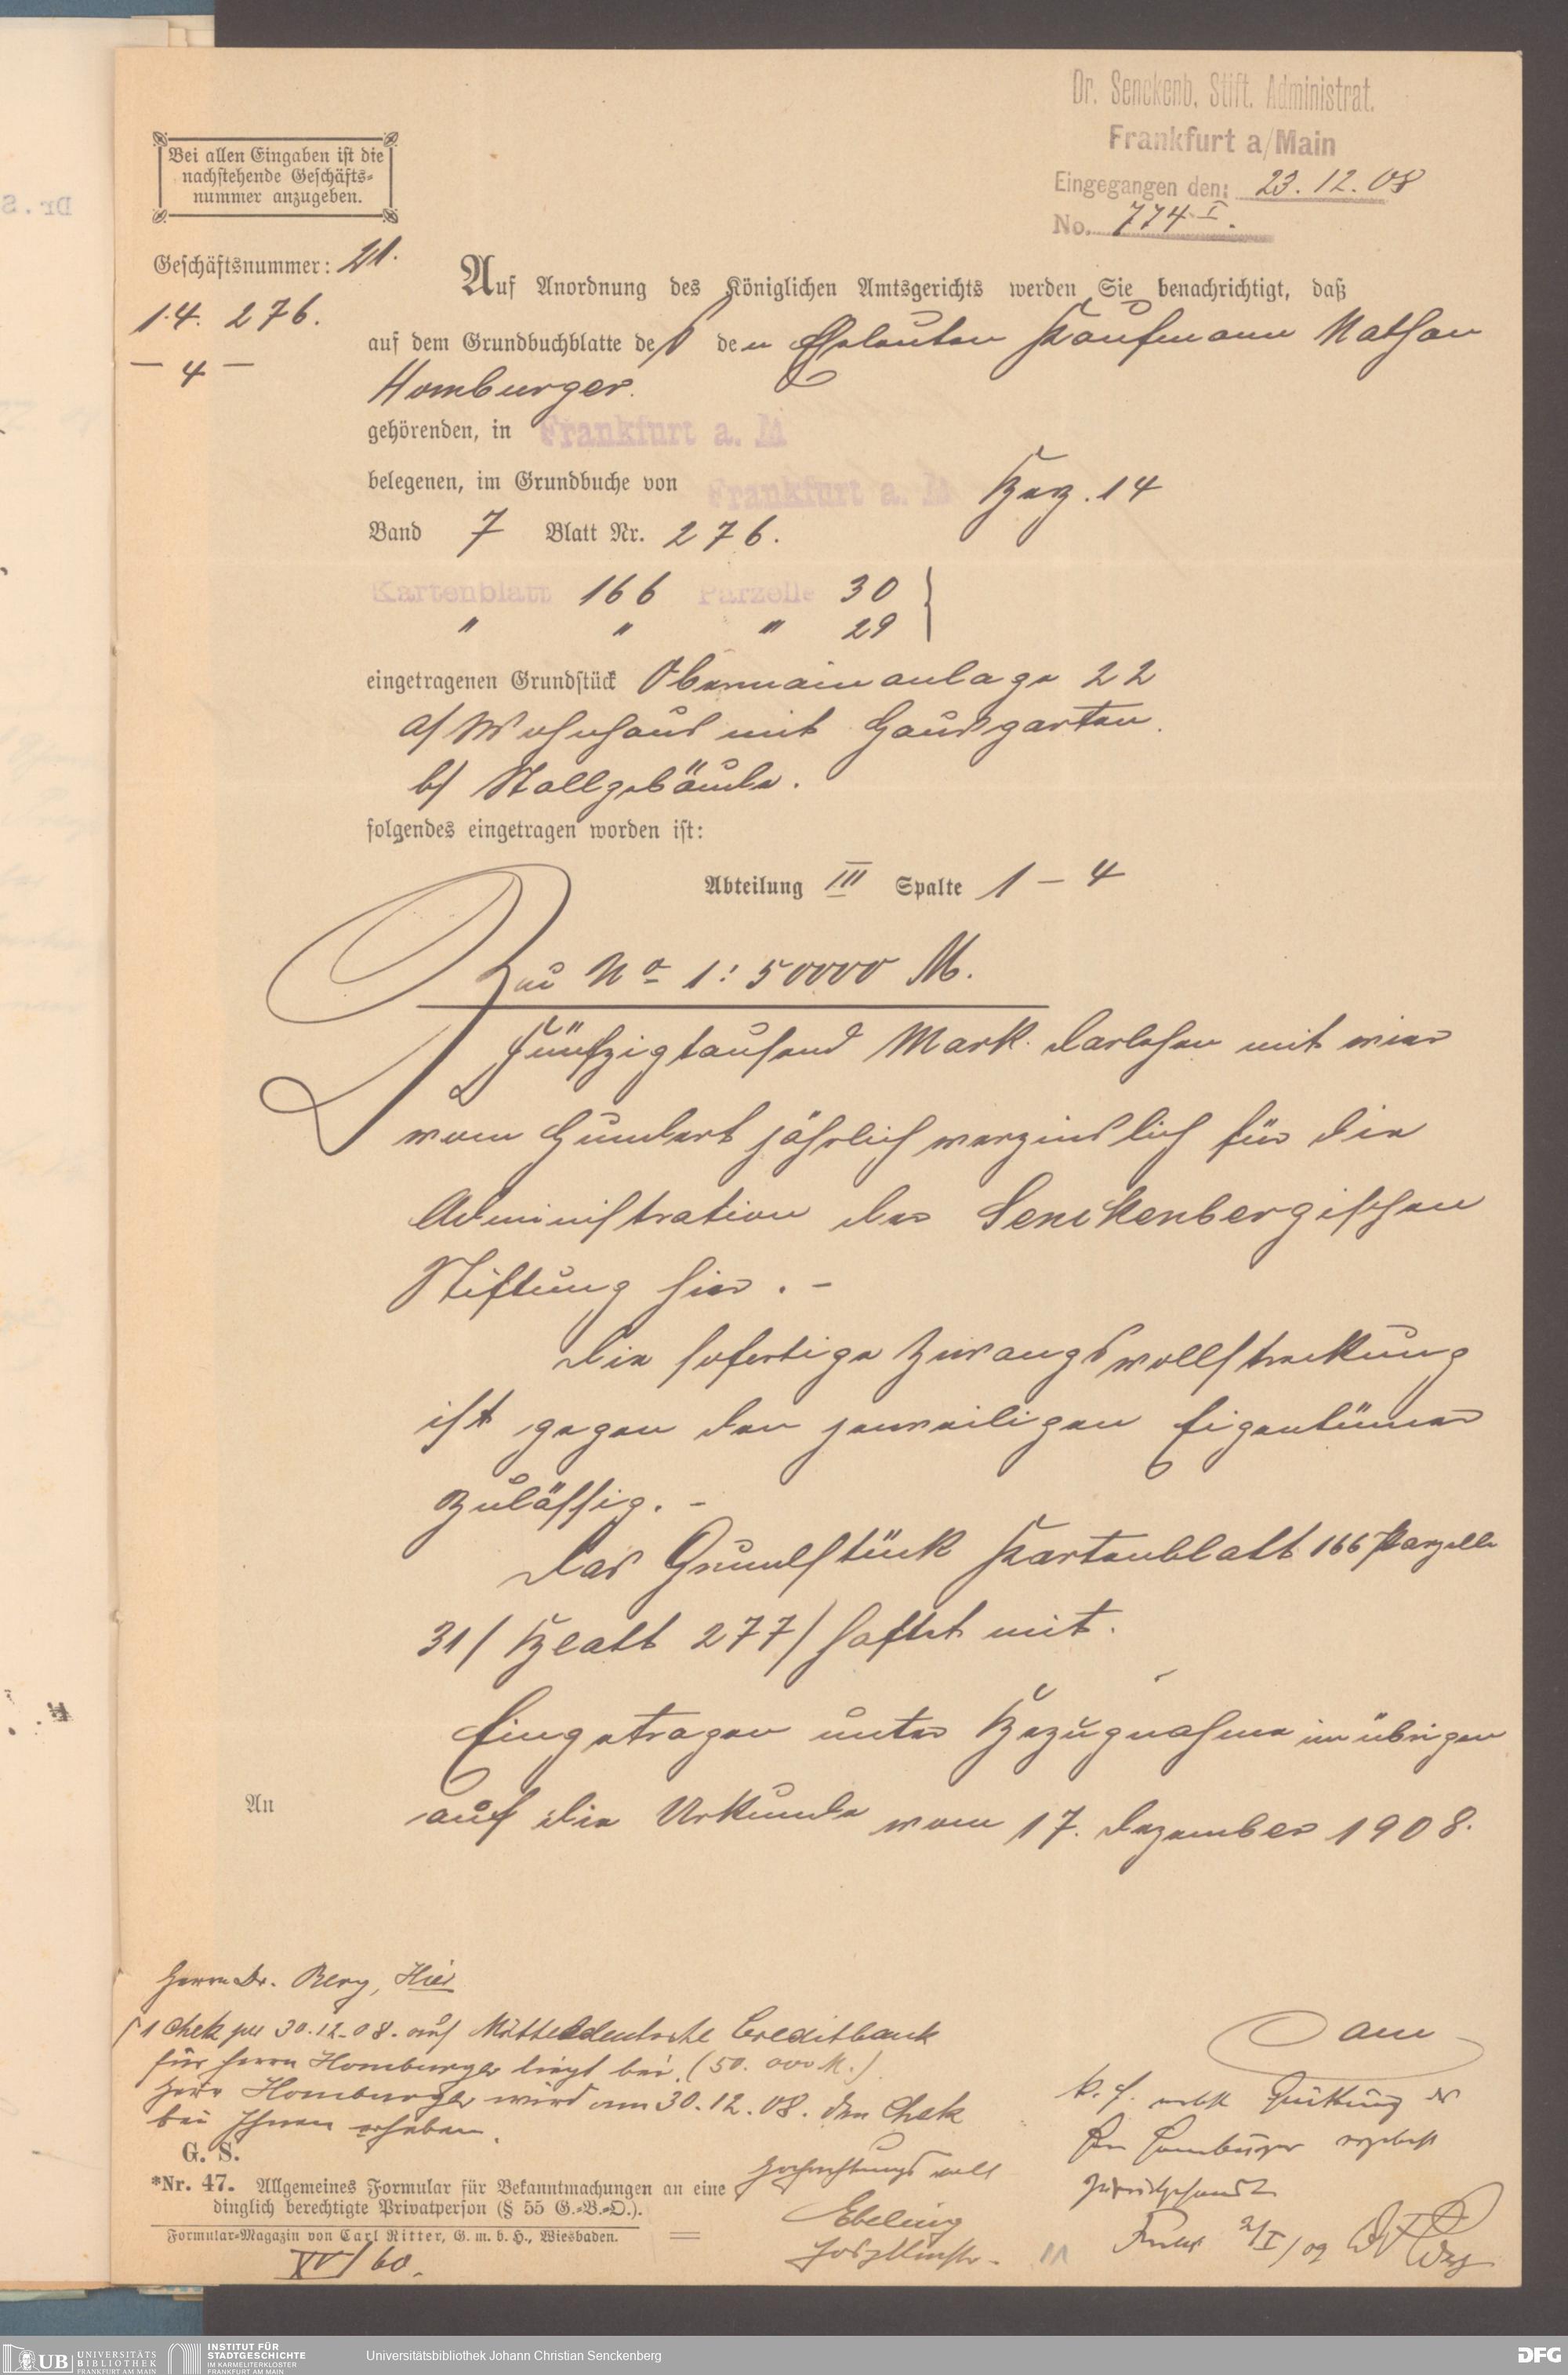 Dr. Senckenb. Stift. Administrat.
Frankfurt a/Main
Eingegangen den: 23.12.08
No. 774 I.
Bei allen Eingaben ist die
nachstehende Geschäfts-
nummer anzugeben.
Geschäftsnummer: 21.
14. 276.
— 4 —
Auf Anordnung des Königlichen Amtsgerichts werden Sie benachrichtigt, daß
auf dem Grundbuchblatte des den Eheleuten Kaufmann Nathan
Homburger.
gehörenden, in Frankfurt a. M
belegenen, im Grundbuche von Frankfurt a. M Bez. 14
Band 7 Blatt Nr. 276.
Kartenblatt 166 Parzelle 30
" " " 29
eingetragenen Grundstück Obermainanlage 22
a/ Wohnhaus mit Hausgarten.
b/ Stallgebäude.
folgendes eingetragen worden ist:
Abteilung III Spalte 1 – 4
Zu No 1: 50000 M.
Fünfzigtausend Mark Darlehen mit vier
vom Hundert jährlich verzinslich für die
Administration der Senckenbergischen
Stiftung hier. –
Die sofortige Zwangsvollstreckung
ist gegen den jeweiligen Eigentümer
zulässig. –
Das Grundstück Kartenblatt 166 Parzelle
31/ Blatt 277/ haftet mit.
Eingetragen unter Bezugnahme im übrigen
auf die Urkunde vom 17. Dezember 1908.
An
Herrn Dr. Berg, Hier
1 Chek per 30.12.08. auf Mitteldeutsche Creditbank
für Herrn Homburger liegt bei. (50.000 M.)
Herr Homburger wird am 30.12.08. den Chek
bei Ihnen erheben.
Hochachtungsvoll
Ebeling
G. S.
*Nr. 47. Allgemeines Formular für Bekanntmachungen an eine
dinglich berechtigte Privatperson (§ 55 G.-B.-O.).
Formular-Magazin von Carl Ritter, G. m. b. H., Wiesbaden.
XV/60.
nebst Quittung des
Herrn Homburger ergebenst
zurückgesandt
2/I/09
UB UNIVERSITÄTS
BIBLIOTHEK
FRANKFURT AM MAIN
INSTITUT FÜR
STADTGESCHICHTE
IM KARMELITERKLOSTER
FRANKFURT AM MAIN
Universitätsbibliothek Johann Christian Senckenberg
DFG